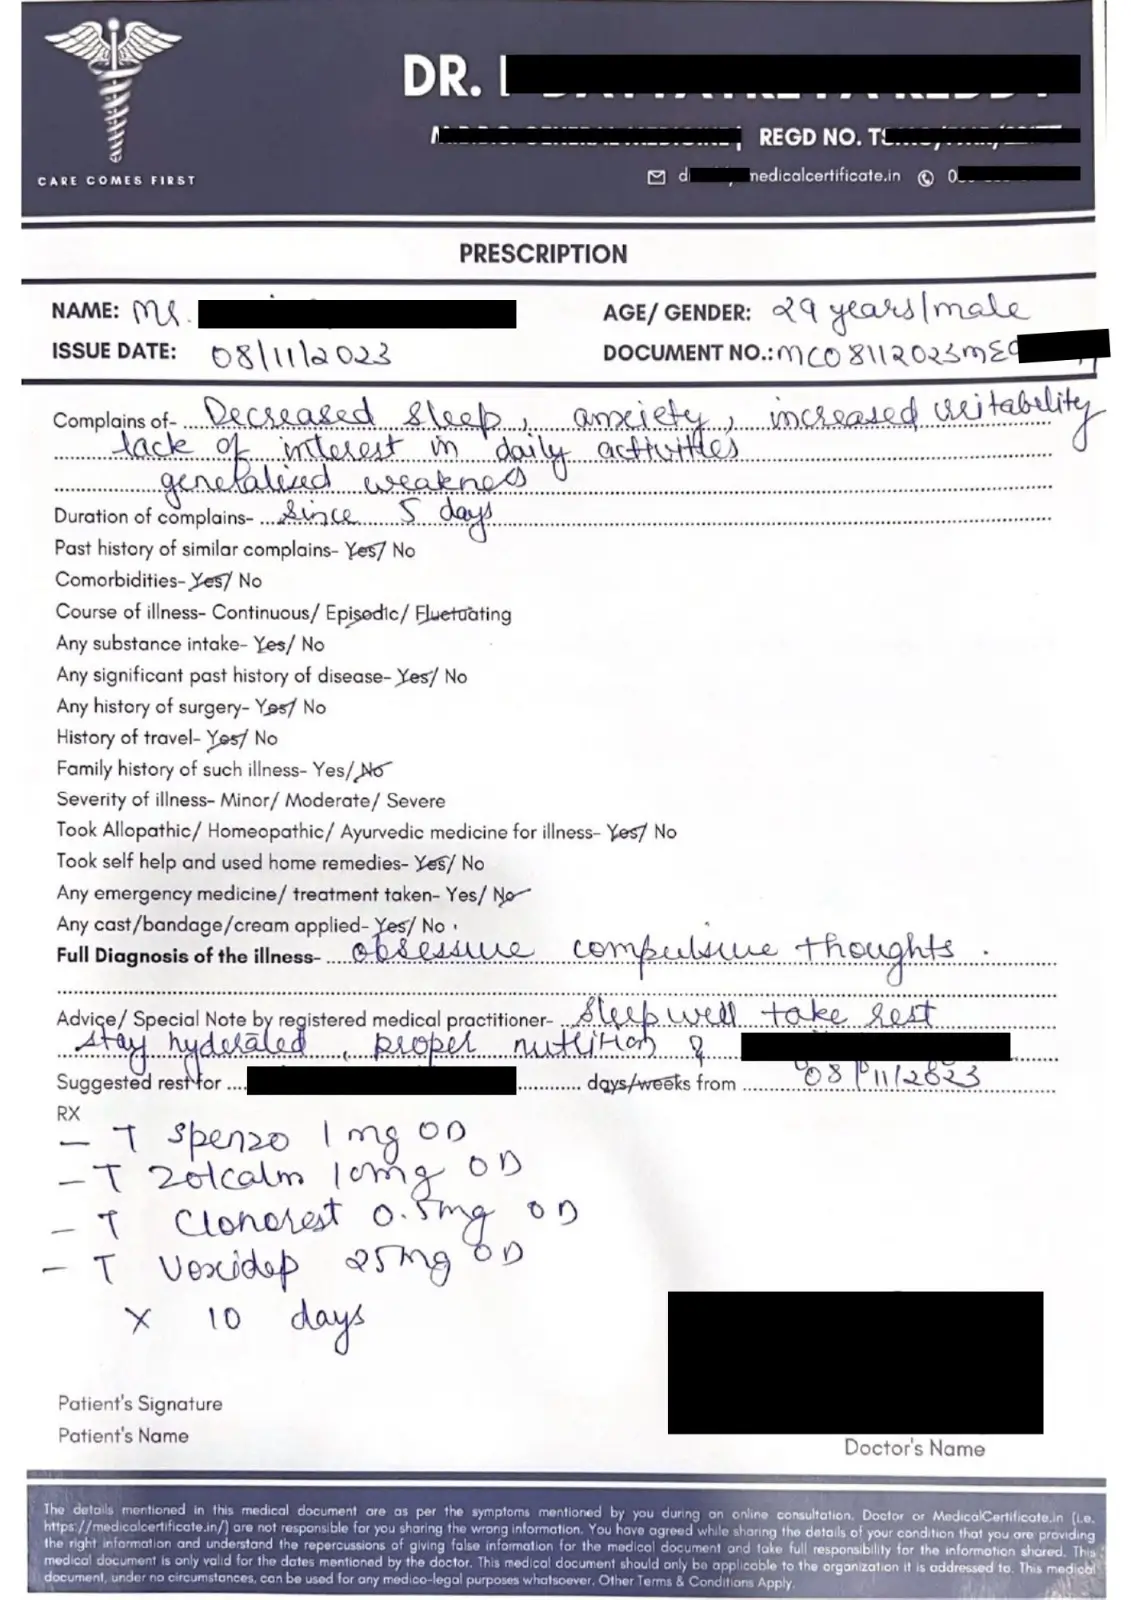 CARE COMES FIRST
DR.
REGD NO.
medicalcertificate.in
PRESCRIPTION
NAME: Mr.
AGE/ GENDER: 29 years/male
ISSUE DATE: 08/11/2023
DOCUMENT NO.: MC08112023ME
Complains of- Decreased sleep, anxiety, increased irritability
lack of interest in daily activities
generalised weakness
Duration of complains- since 5 days
Past history of similar complains- Yes/ No
Comorbidities- Yes/ No
Course of illness- Continuous/ Episodic/ Fluctuating
Any substance intake- Yes/ No
Any significant past history of disease- Yes/ No
Any history of surgery- Yes/ No
History of travel- Yes/ No
Family history of such illness- Yes/ No
Severity of illness- Minor/ Moderate/ Severe
Took Allopathic/ Homeopathic/ Ayurvedic medicine for illness- Yes/ No
Took self help and used home remedies- Yes/ No
Any emergency medicine/ treatment taken- Yes/ No
Any cast/bandage/cream applied- Yes/ No
Full Diagnosis of the illness- obsessive compulsive thoughts.
Advice/ Special Note by registered medical practitioner- sleep well take rest
stay hyderated, proper nutrition &
Suggested rest for days/weeks from 08/11/2023
RX
- T Spenzo 1 mg OD
- T Zolcalm 10mg OD
- T Clonorest 0.5mg OD
- T Voxidep 25mg OD
X 10 days
Patient's Signature
Patient's Name
Doctor's Name
The details mentioned in this medical document are as per the symptoms mentioned by you during an online consultation. Doctor or MedicalCertificate.in (i.e.
https://medicalcertificate.in/) are not responsible for you sharing the wrong information. You have agreed while sharing the details of your condition that you are providing
the right information and understand the repercussions of giving false information for the medical document and take full responsibility for the information shared. This
medical document is only valid for the dates mentioned by the doctor. This medical document should only be applicable to the organization it is addressed to. This medical
document, under no circumstances, can be used for any medico-legal purposes whatsoever. Other Terms & Conditions Apply.